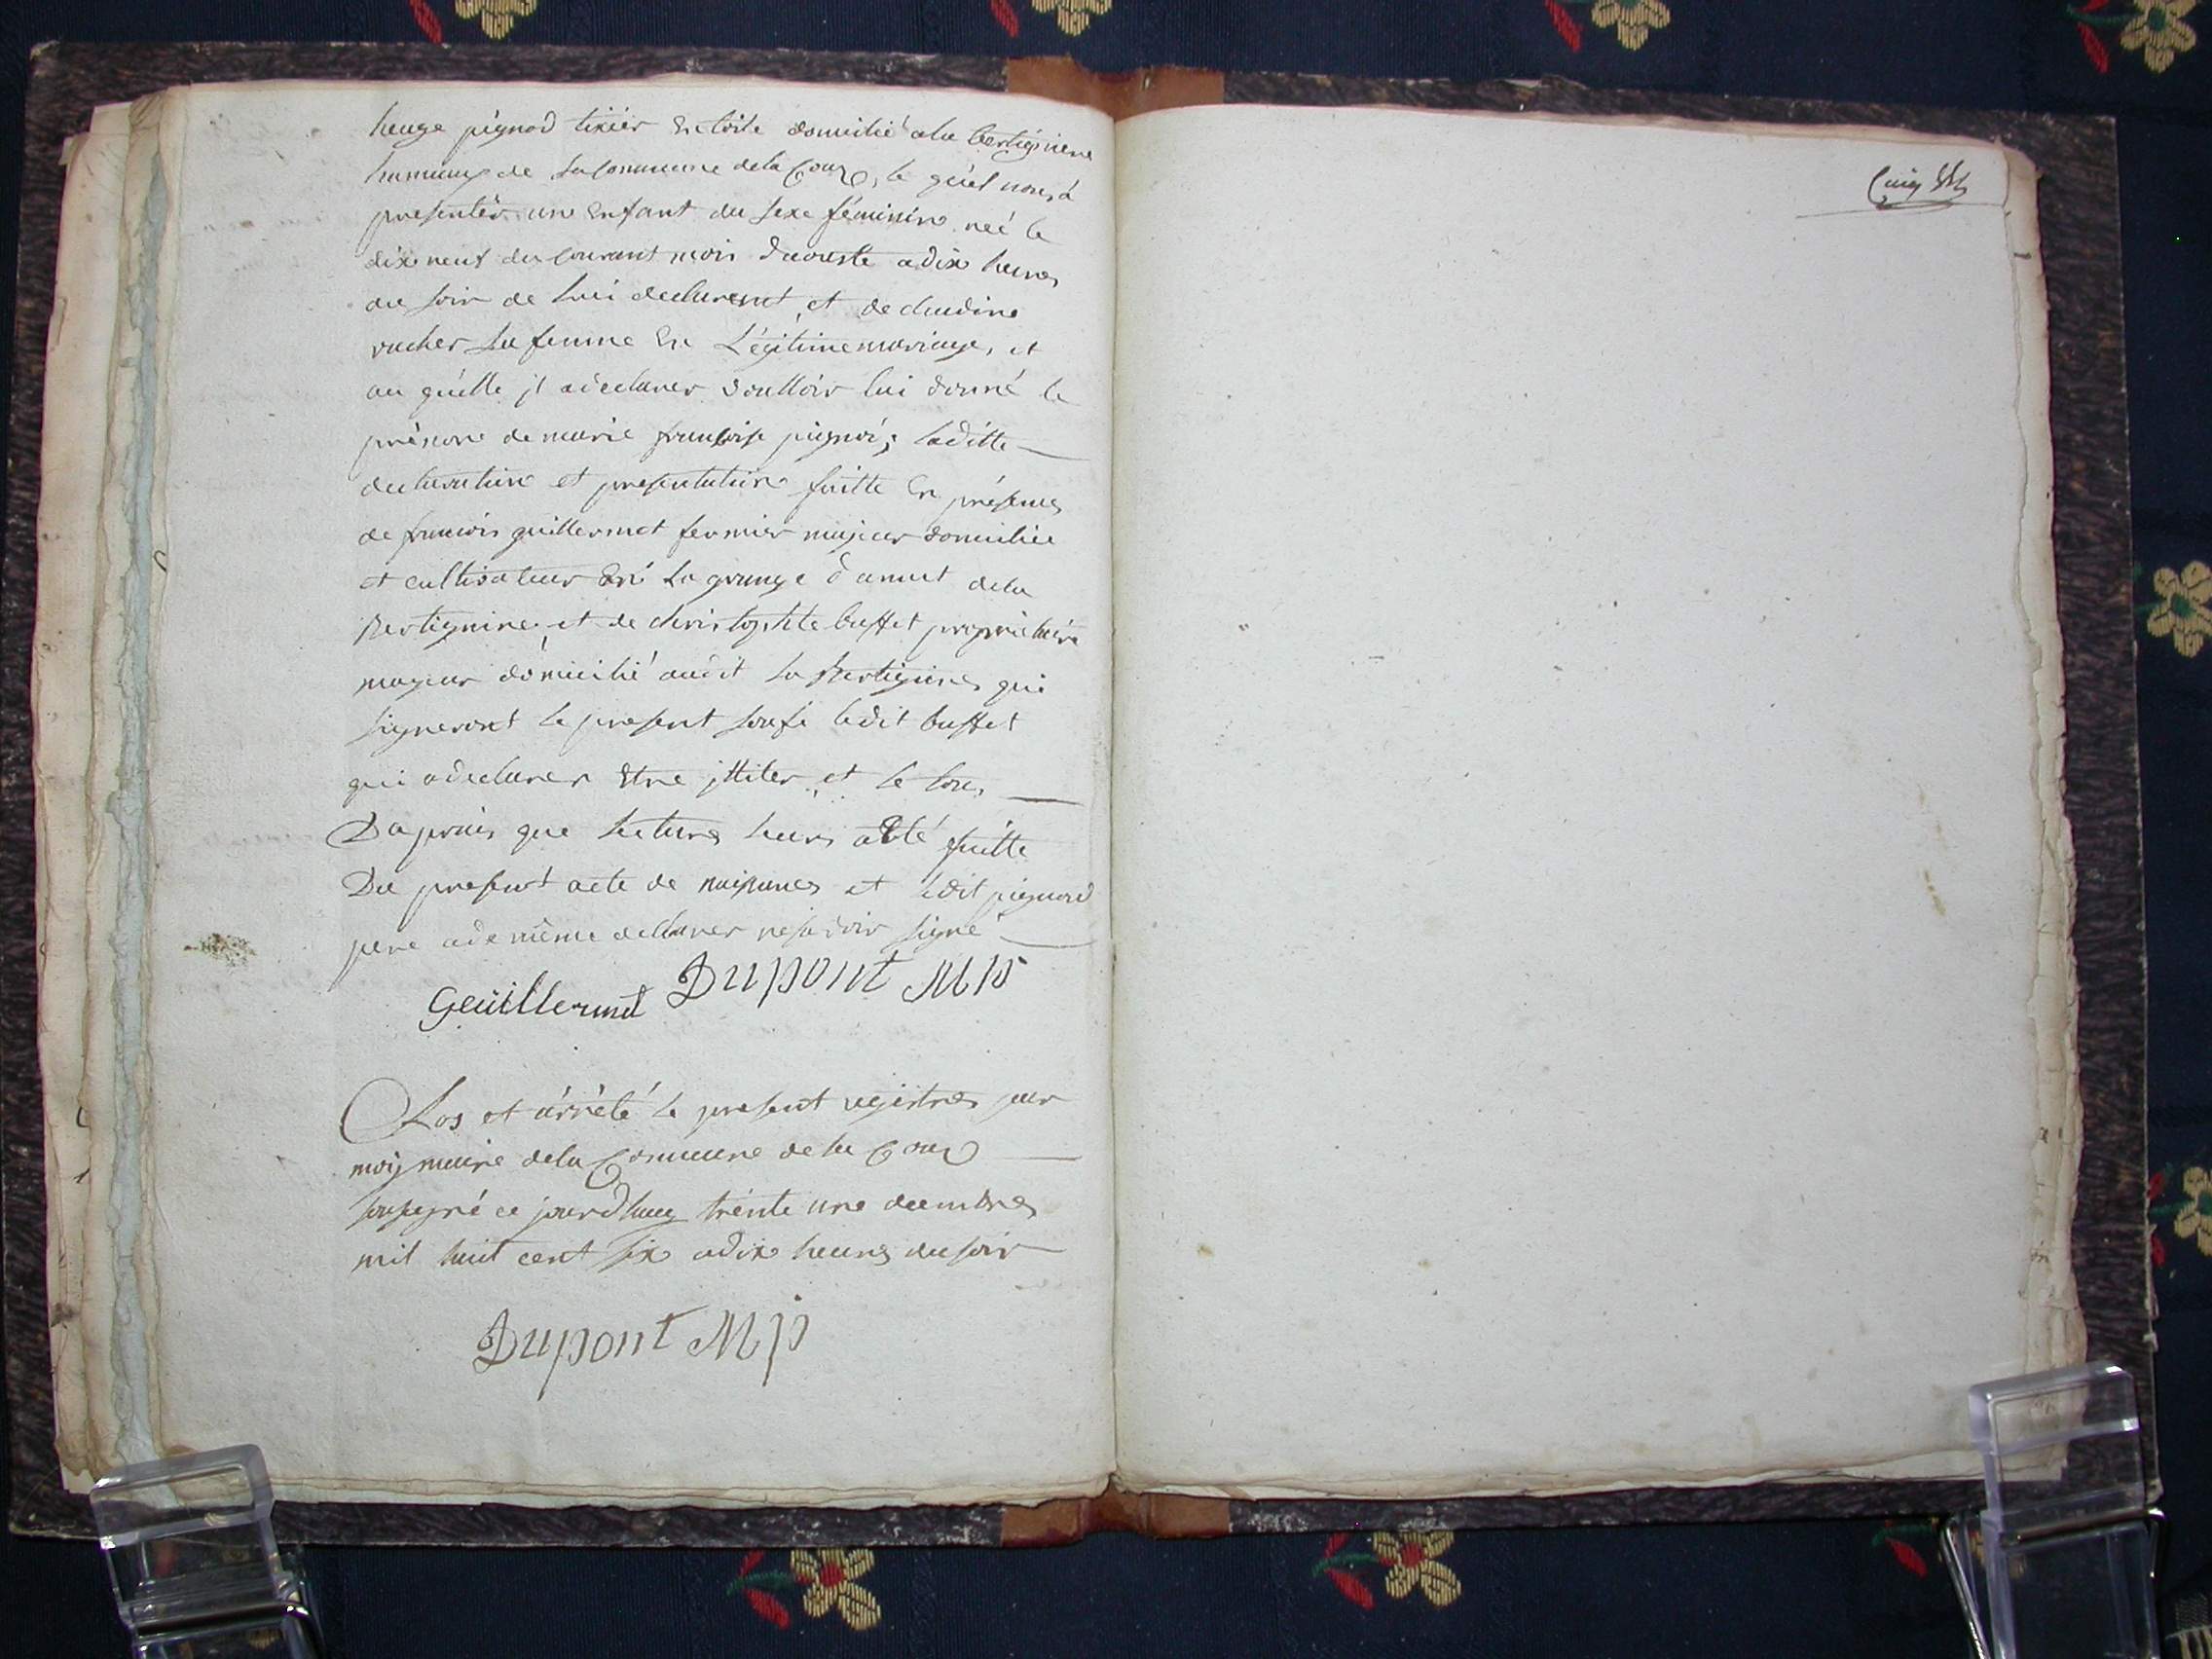 pignod tixier En toile domicilié ala bertignere
hameaux de La Commune dela Coux, le quel nous à
presentér une Enfant du sexe féminine neé le
dix neuf du Courant mois daouste a dix heures
du soir de Lui declarent, et de claudine
vucher Sa femme En Légitime mariage, et
au quélle jl a declarer voulloir lui donné le
prénom de marie françoise pignod; laditte
declaration et presentation faitte En présences
de francois guillermet fermier majeur domicilié
et cultivateur En La grange d'amut dela
Bertignine, et de christophle buffet proprietaire
majeur domicilié audit La Bertignines qui
signeront le present ledit buffet
qui a declarer Etre jlliter et le tous
Daprais que Lecture leurs a Eté faitte
Du present acte de naissances et ledit pignod
pere ade même declarer ne savoir signé
Geüillermet Dupont
Clos et àrrèté le present registres par
moy maire dela Commune de la Coux
soussigné ce jourdhuy trente une decembres
mil huit cent six a dix heures du soir
Dupont